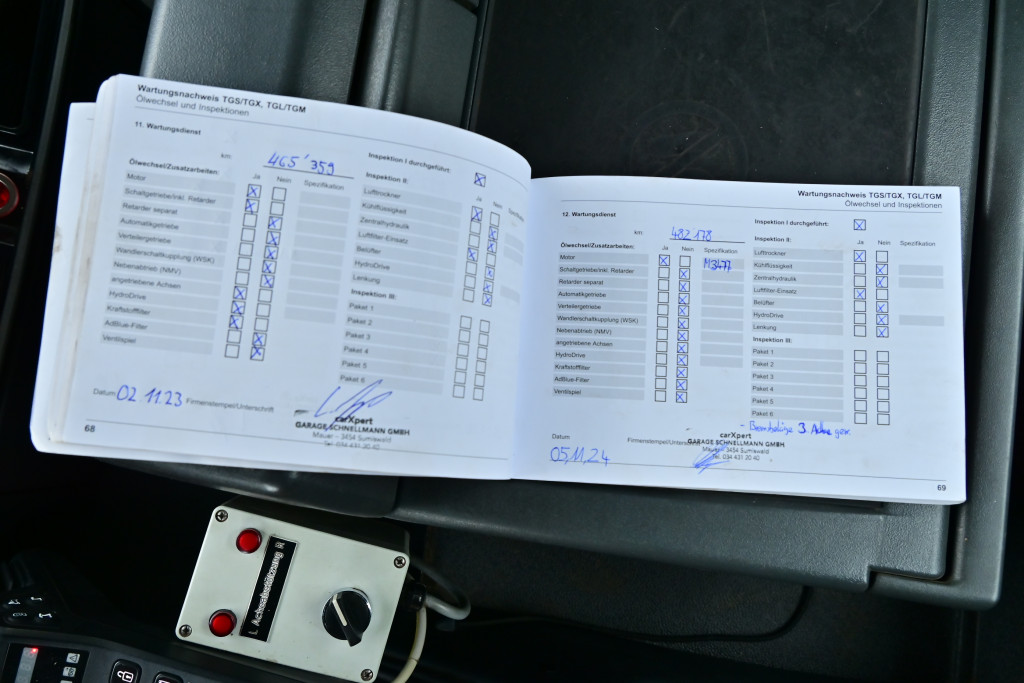 Wartungsnachweis TGS/TGX, TGL/TGM
Ölwechsel und Inspektionen
11. Wartungsdienst
km 465'359
Ölwechsel/Zusatzarbeiten: Ja Nein Spezifikation
Motor
Schaltgetriebe/inkl. Retarder
Retarder separat
Automatikgetriebe
Verteilergetriebe
Wandlerschaltkupplung (WSK)
Nebenabtrieb (NMV)
angetriebene Achsen
HydroDrive
Kraftstofffilter
AdBlue-Filter
Ventilspiel
Inspektion I durchgeführt:
Inspektion II: Ja Nein Spezifikation
Lufttrockner
Kühlflüssigkeit
Zentralhydraulik
Luftfilter-Einsatz
Belüfter
HydroDrive
Lenkung
Inspektion III:
Paket 1
Paket 2
Paket 3
Paket 4
Paket 5
Paket 6
Datum 02.11.23 Firmenstempel/Unterschrift
carXpert
GARAGE SCHNELLMANN GMBH
Mauer - 3454 Sumiswald
Tel. 034 431 20 40
68
Wartungsnachweis TGS/TGX, TGL/TGM
Ölwechsel und Inspektionen
12. Wartungsdienst
km 482 178
Ölwechsel/Zusatzarbeiten: Ja Nein Spezifikation
Motor M3477
Schaltgetriebe/inkl. Retarder
Retarder separat
Automatikgetriebe
Verteilergetriebe
Wandlerschaltkupplung (WSK)
Nebenabtrieb (NMV)
angetriebene Achsen
HydroDrive
Kraftstofffilter
AdBlue-Filter
Ventilspiel
Inspektion I durchgeführt:
Inspektion II: Ja Nein Spezifikation
Lufttrockner
Kühlflüssigkeit
Zentralhydraulik
Luftfilter-Einsatz
Belüfter
HydroDrive
Lenkung
Inspektion III:
Paket 1
Paket 2
Paket 3
Paket 4
Paket 5
Paket 6
- 3. Achse
Datum Firmenstempel/Unterschrift
05.11.24
carXpert
GARAGE SCHNELLMANN GMBH
Mauer - 3454 Sumiswald
Tel. 034 431 20 40
69
L Achsabstützung R